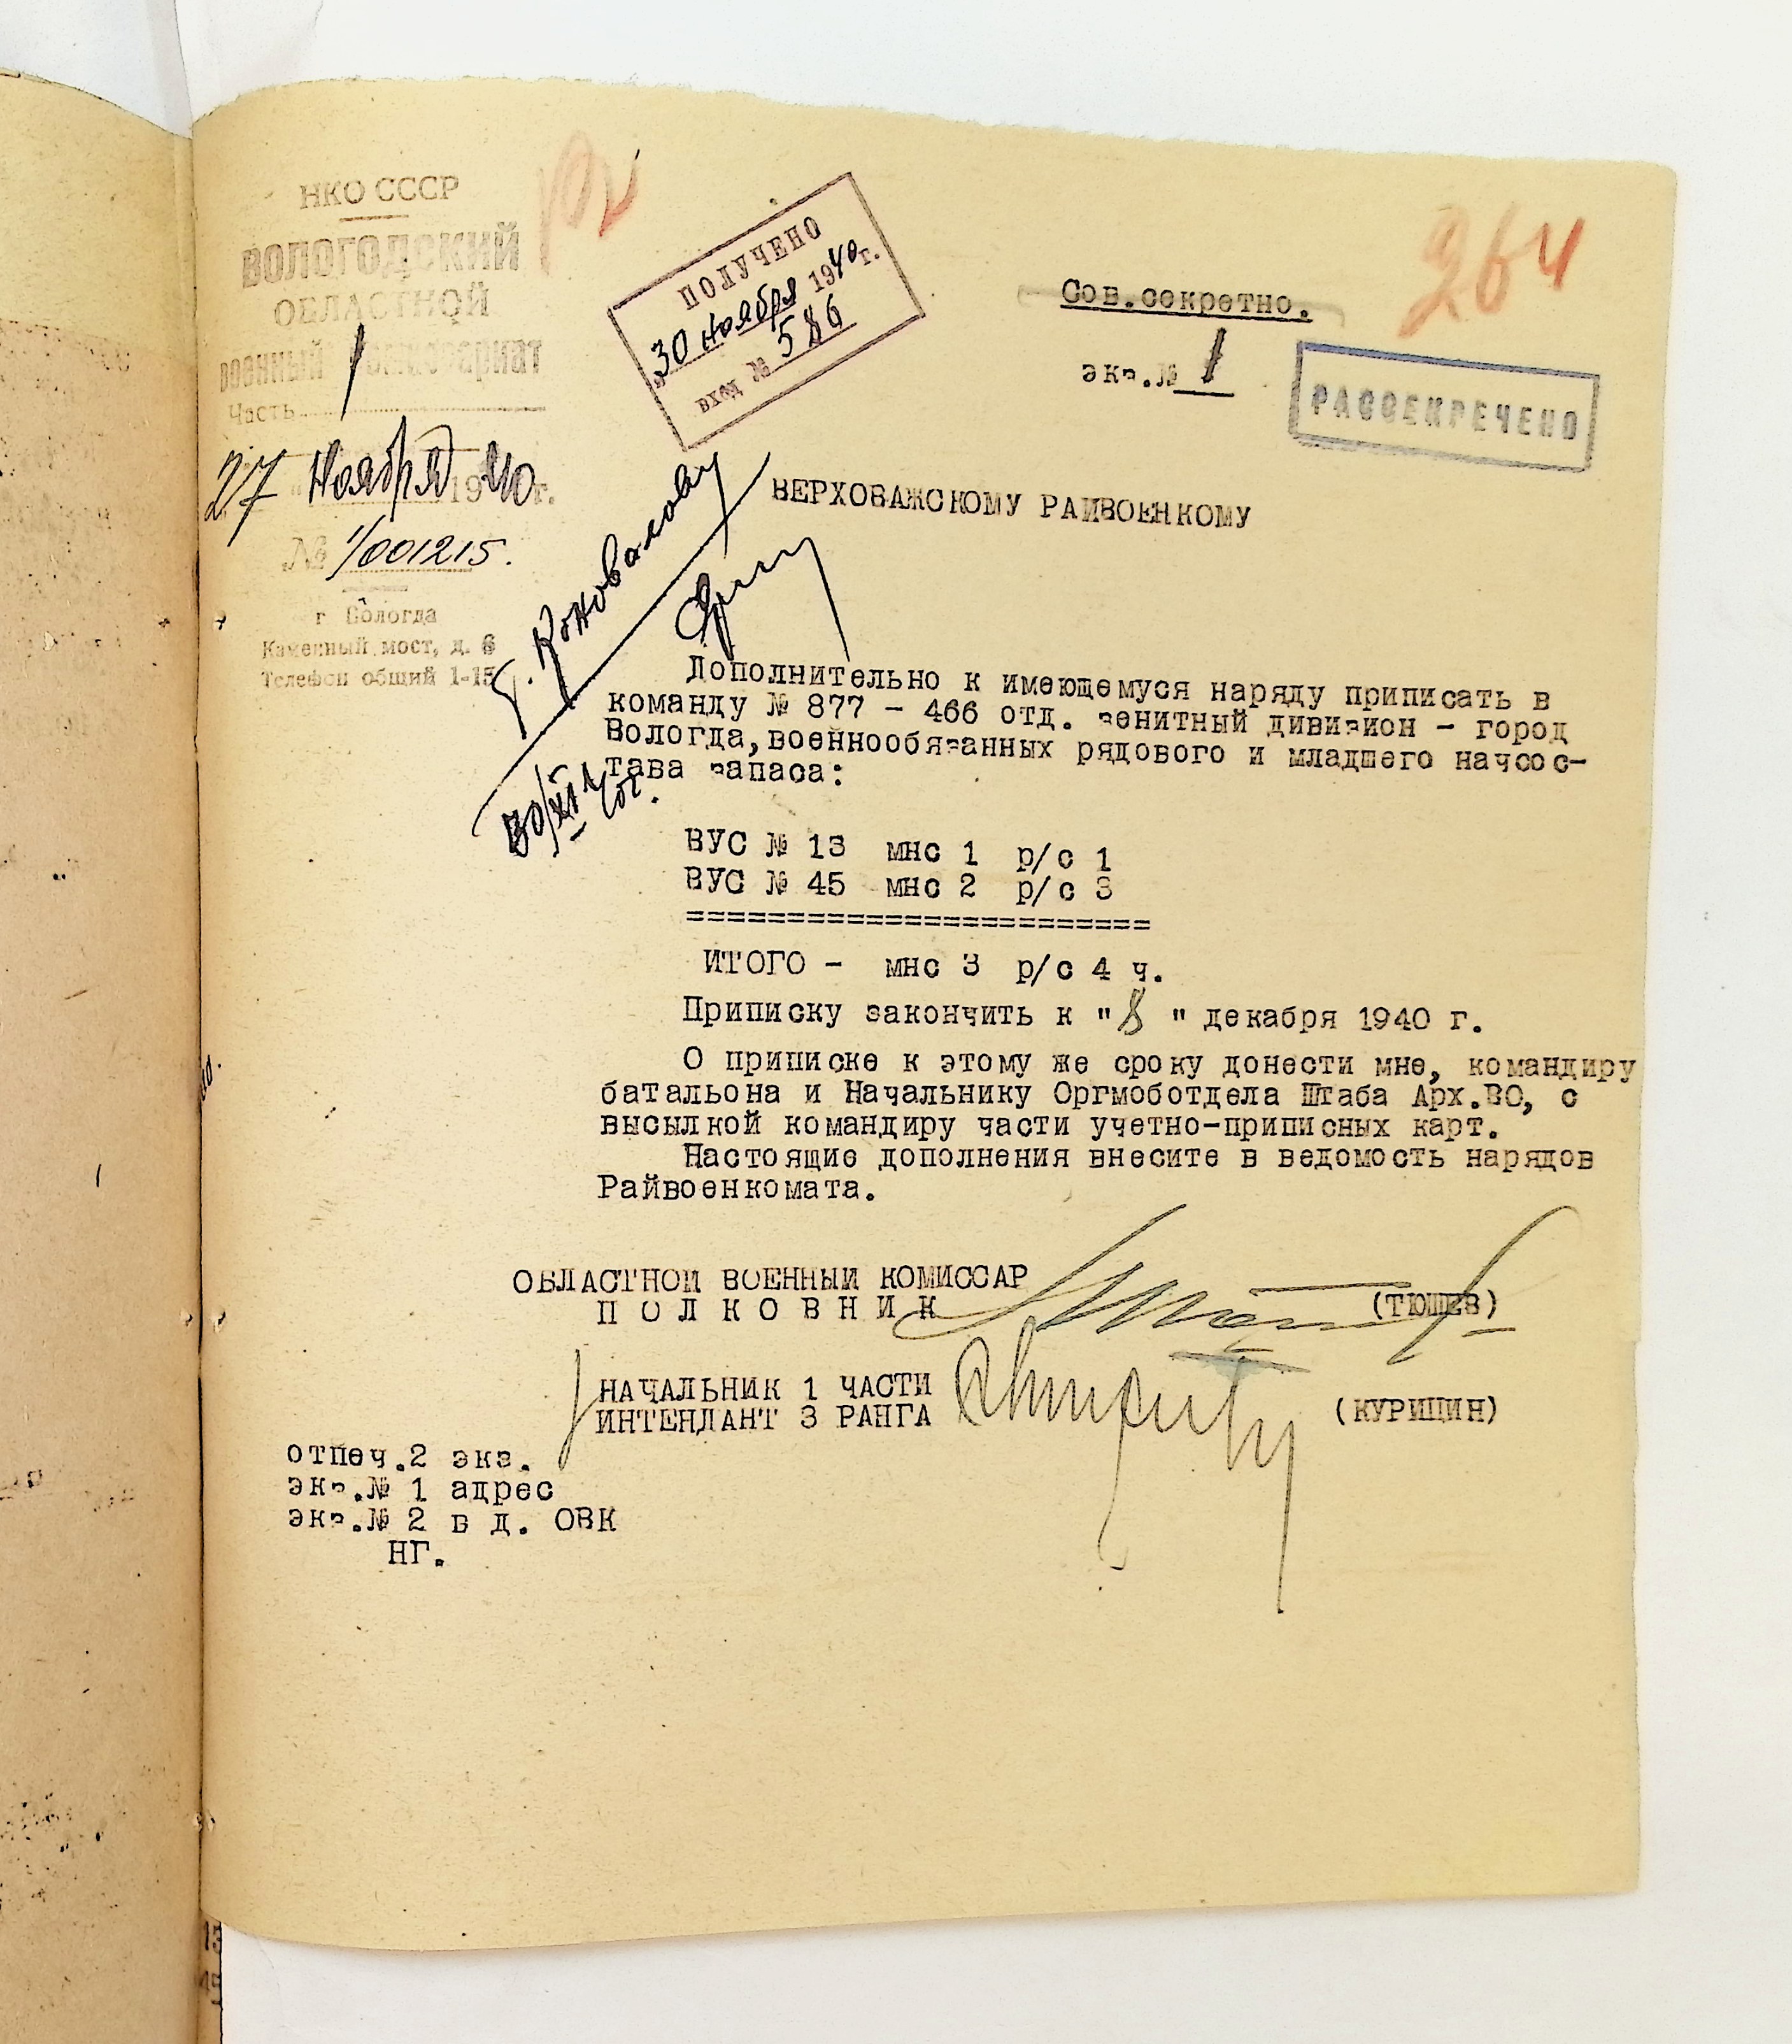 НКО СССР
ВОЛОГОДСКИЙ
ОБЛАСТНОЙ
военный комиссариат
Часть 1
27 ноября 1940г.
№ 1/001215.
г Вологда
Каменный мост, д. 6
Телефон общий 1-15
ПОЛУЧЕНО
"30 ноября 1940г.
вход № 586
264
Сов.секретно.
экз.№ 1
РАССЕКРЕЧЕНО
ВЕРХОВАЖСКОМУ РАЙВОЕНКОМУ
т. Коновалову
30/XI
Дополнительно к имеющемуся наряду приписать в
команду № 877 – 466 отд. зенитный дивизион – город
Вологда,военнообязанных рядового и младшего начсос-
тава запаса:
ВУС № 13 мнс 1 р/с 1
ВУС № 45 мнс 2 р/с 3
=======================
ИТОГО – мнс 3 р/с 4 ч.
Приписку закончить к "8" декабря 1940 г.
О приписке к этому же сроку донести мне, командиру
батальона и Начальнику Оргмоботдела Штаба Арх.ВО, с
высылкой командиру части учетно-приписных карт.
Настоящие дополнения внесите в ведомость нарядов
Райвоенкомата.
ОБЛАСТНОЙ ВОЕННЫЙ КОМИССАР
ПОЛКОВНИК (ТЮШЕВ)
НАЧАЛЬНИК 1 ЧАСТИ
ИНТЕНДАНТ 3 РАНГА (КУРИЦИН)
отпеч.2 экз.
экз.№ 1 адрес
экз.№ 2 в д. ОВК
НГ.